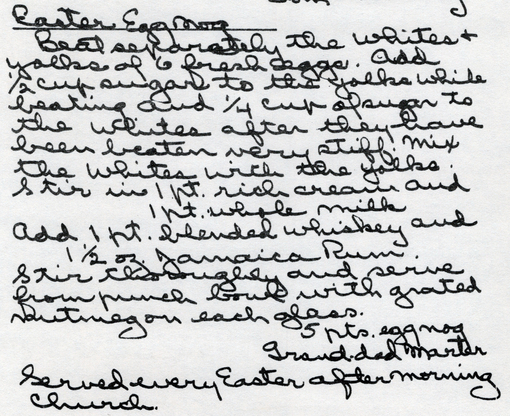 Easter Egg Nog
Beat separately the whites +
yolks of 6 fresh eggs. Add
1/2 cup sugar to the yolks while
beating and 1/4 cup of sugar to
the whites after they have
been beaten very stiff. Mix
the whites with the yolks.
Stir in 1 pt. rich cream and
1 pt. whole milk
Add 1 pt. blended whiskey and
1 1/2 oz. Jamaica Rum.
Stir thoroughly and serve
from punch bowl with grated
nutmeg on each glass.
5 pts. egg nog
Grand-dad Marter
Served every Easter after morning
Church.